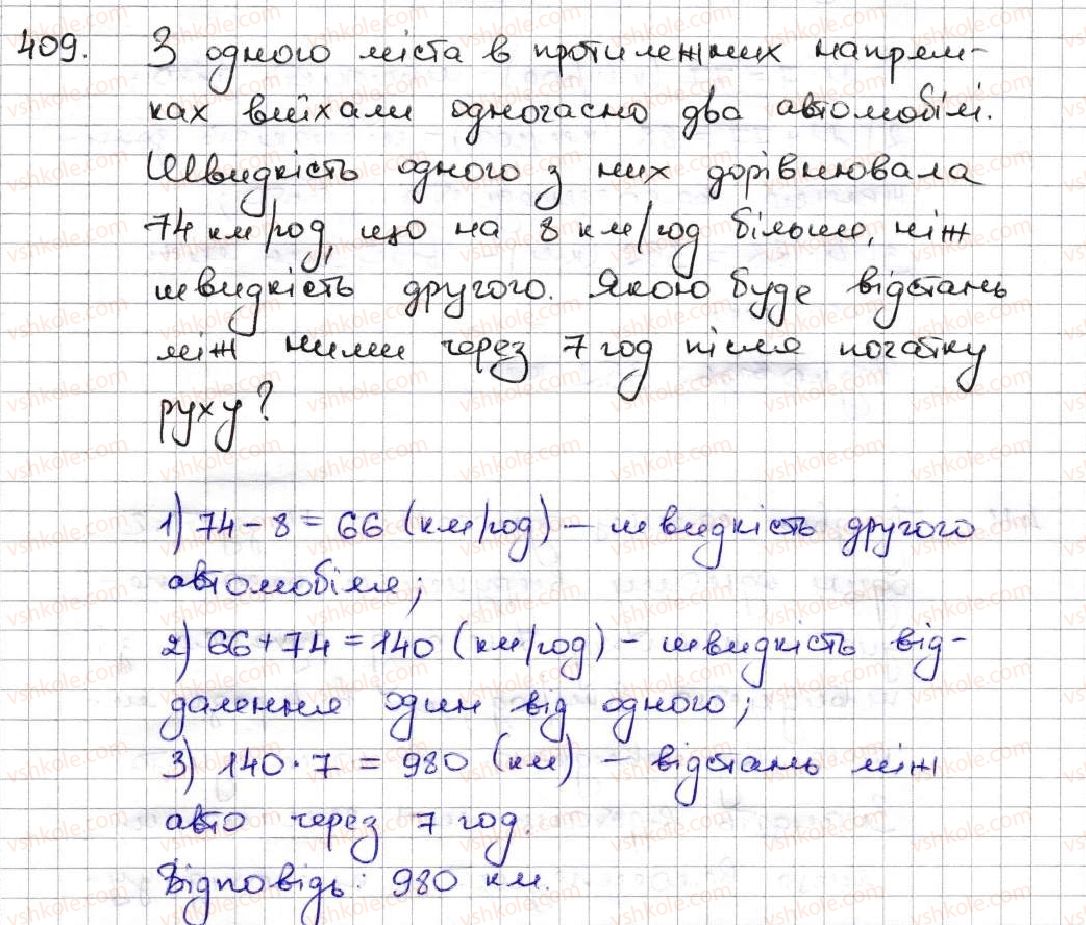 409. З одного міста в протилежних напрям-
ках виїхали одночасно два автомобілі.
Швидкість одного з них дорівнювала
74 км/год, що на 8 км/год більше, ніж
швидкість другого. Якою буде відстань
між ними через 7 год після початку
руху?
1) 74 - 8 = 66 (км/год) - швидкість другого
автомобіля;
2) 66 + 74 = 140 (км/год) - швидкість від-
далення один від одного;
3) 140 · 7 = 980 (км) - відстань між
авто через 7 год.
Відповідь: 980 км.